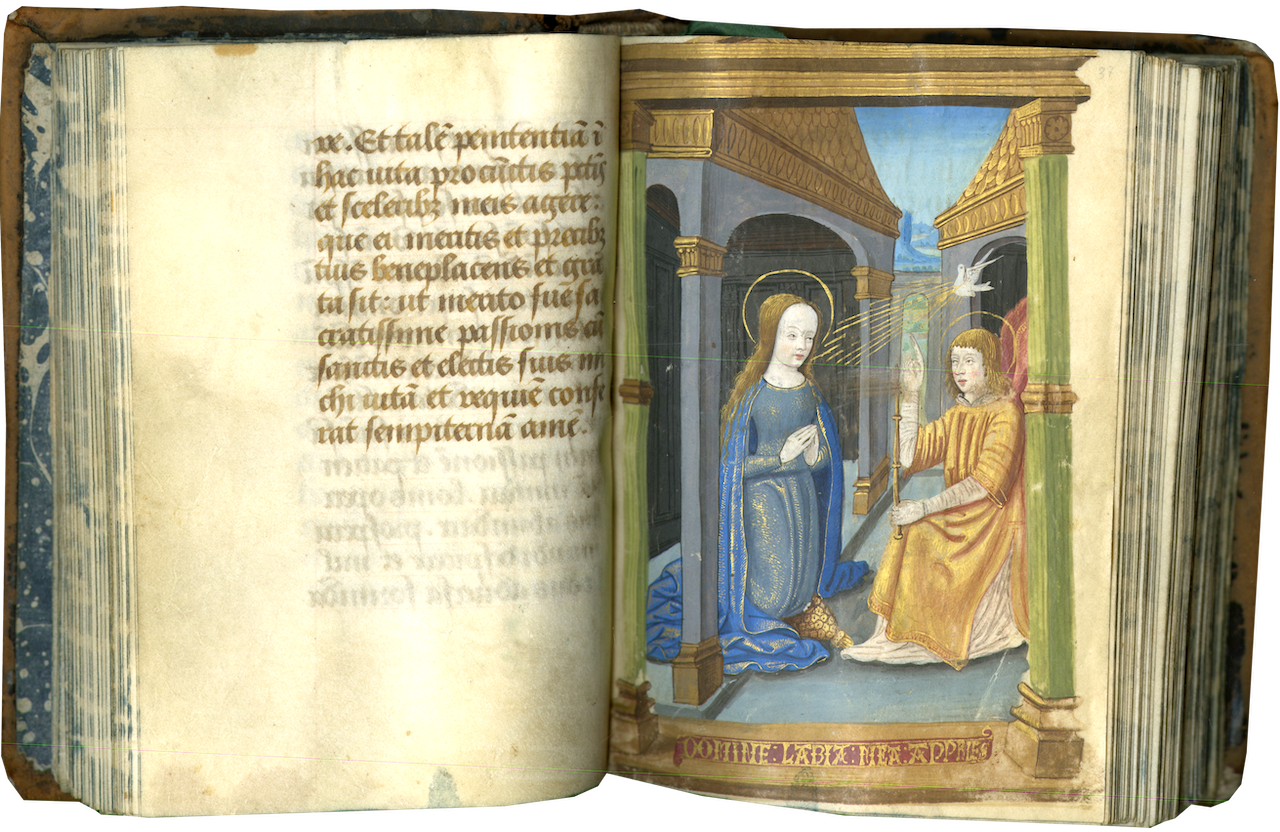 re. Et talē penitentiā ī
hac uita pro cūctis pctīs
et sceleribꝫ meis agere:
que ei meritis et precibꝫ
tuis beneplacens et gra
ta sit: ut merito sue sa
cratissime passionis cū
sanctis et electis suis mi
chi uitā et requiē confe
rat sempiternā amē.
DOMINE·LABIA·MEA·APPRIES